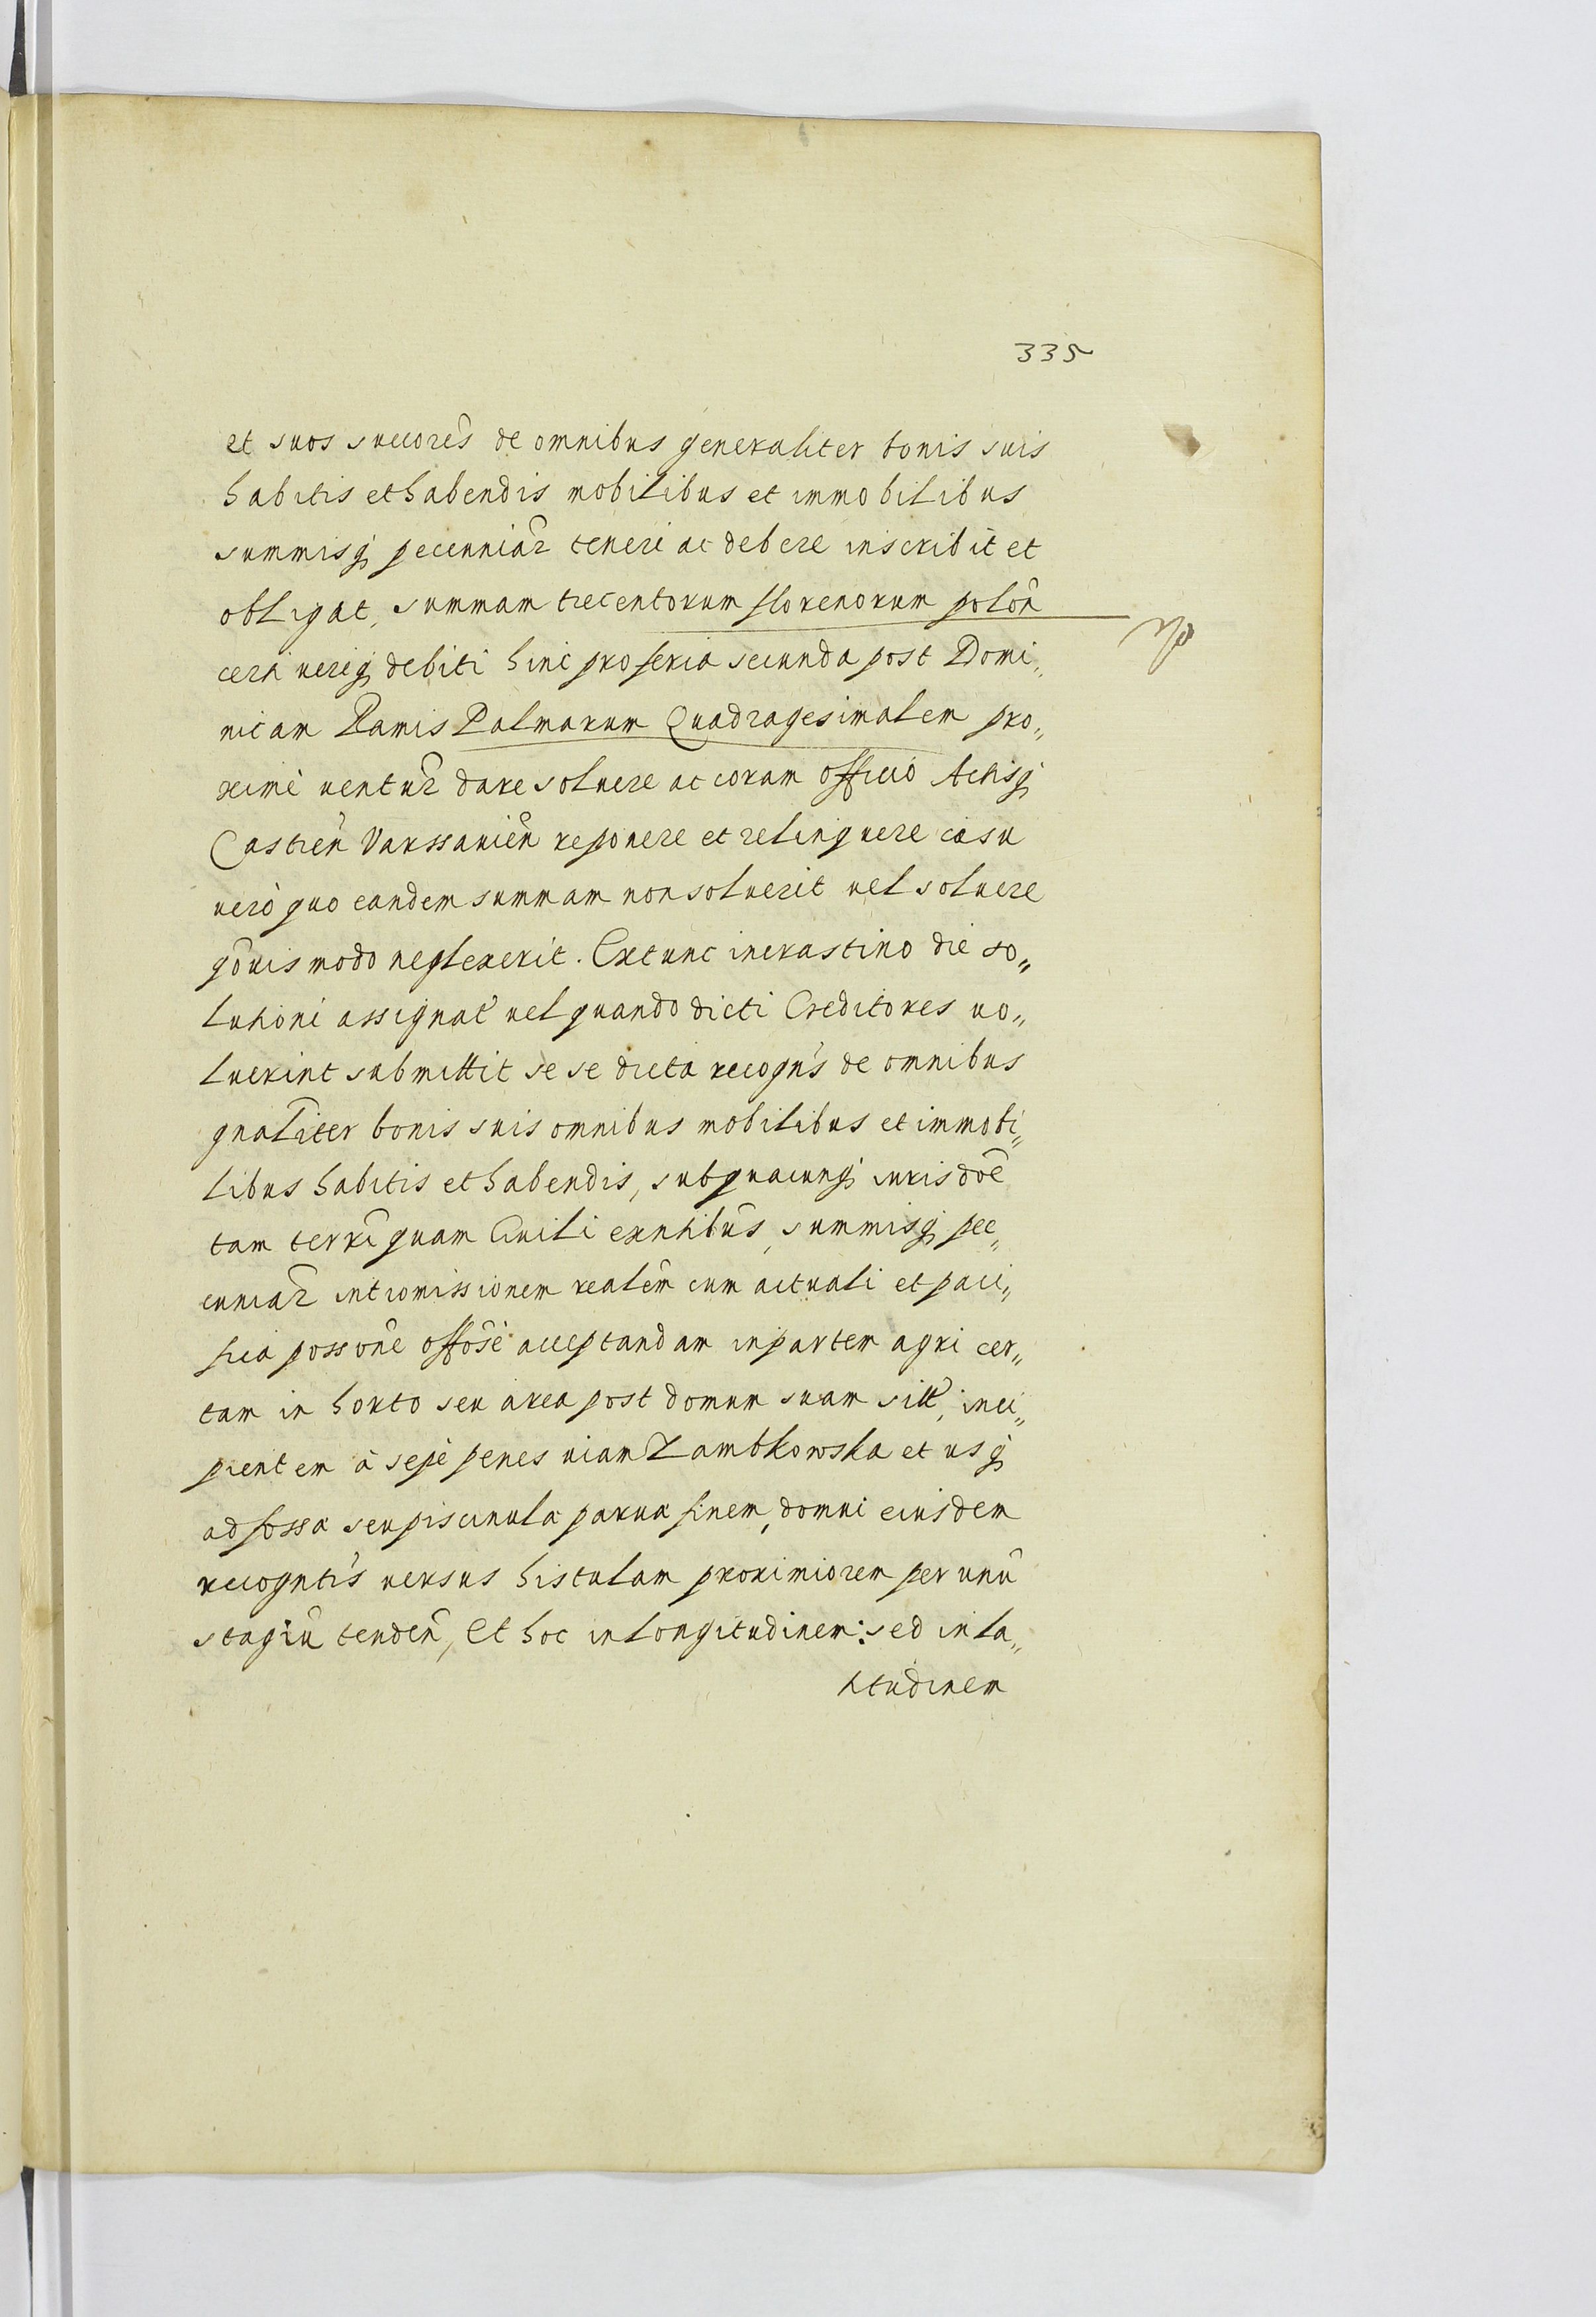 335
et suos succorēs de omnibus generaliter bonis suis
habitis et habendis mobilibus et immobilibus
summisq; pecunniar̄ teneri ac debere inscribit et
obligat, summam trecentorum florenorum polon̄
certi veriq; debiti hinc pro feria secunda post Domi„
nicam Ramis Palmarum Quadragesimalem pro„
xime ventur̄ dare soluere ac coram officio Actisq;
Castren̄ Varssauien̄ reponere et relinquere casu
uerò quo eandem summam non soluerit uel soluere
qōuis modo neglexerit. Extunc in crastino die so„
lutioni assignat̄ uel quando dicti Creditores uo„
luerint submittit se se dicta recogn̄s de omnibus
gnāliter bonis suis omnibus mobilibus et immobi„
libus habitis et habendis, sub quacunq; iurisdōe
tam terrī quam Ciuili exntibūs, summisq; pec„
cuniar̄ intromissionem realem̄ cum actuali et paci„
fica possonē offōse acceptandam in partem agri cer„
tam in horto seu area post domum suam sitt̄, inci„
pientem à sepe penes uiam Zambkowska et usq;
ad fossa seu piscinula parua finem, domui eiusdem
recogntīs uersus histulam proximiorem per unū
stagiū tenden̄, Et hoc in longitudinem: sed in la„
titudinem